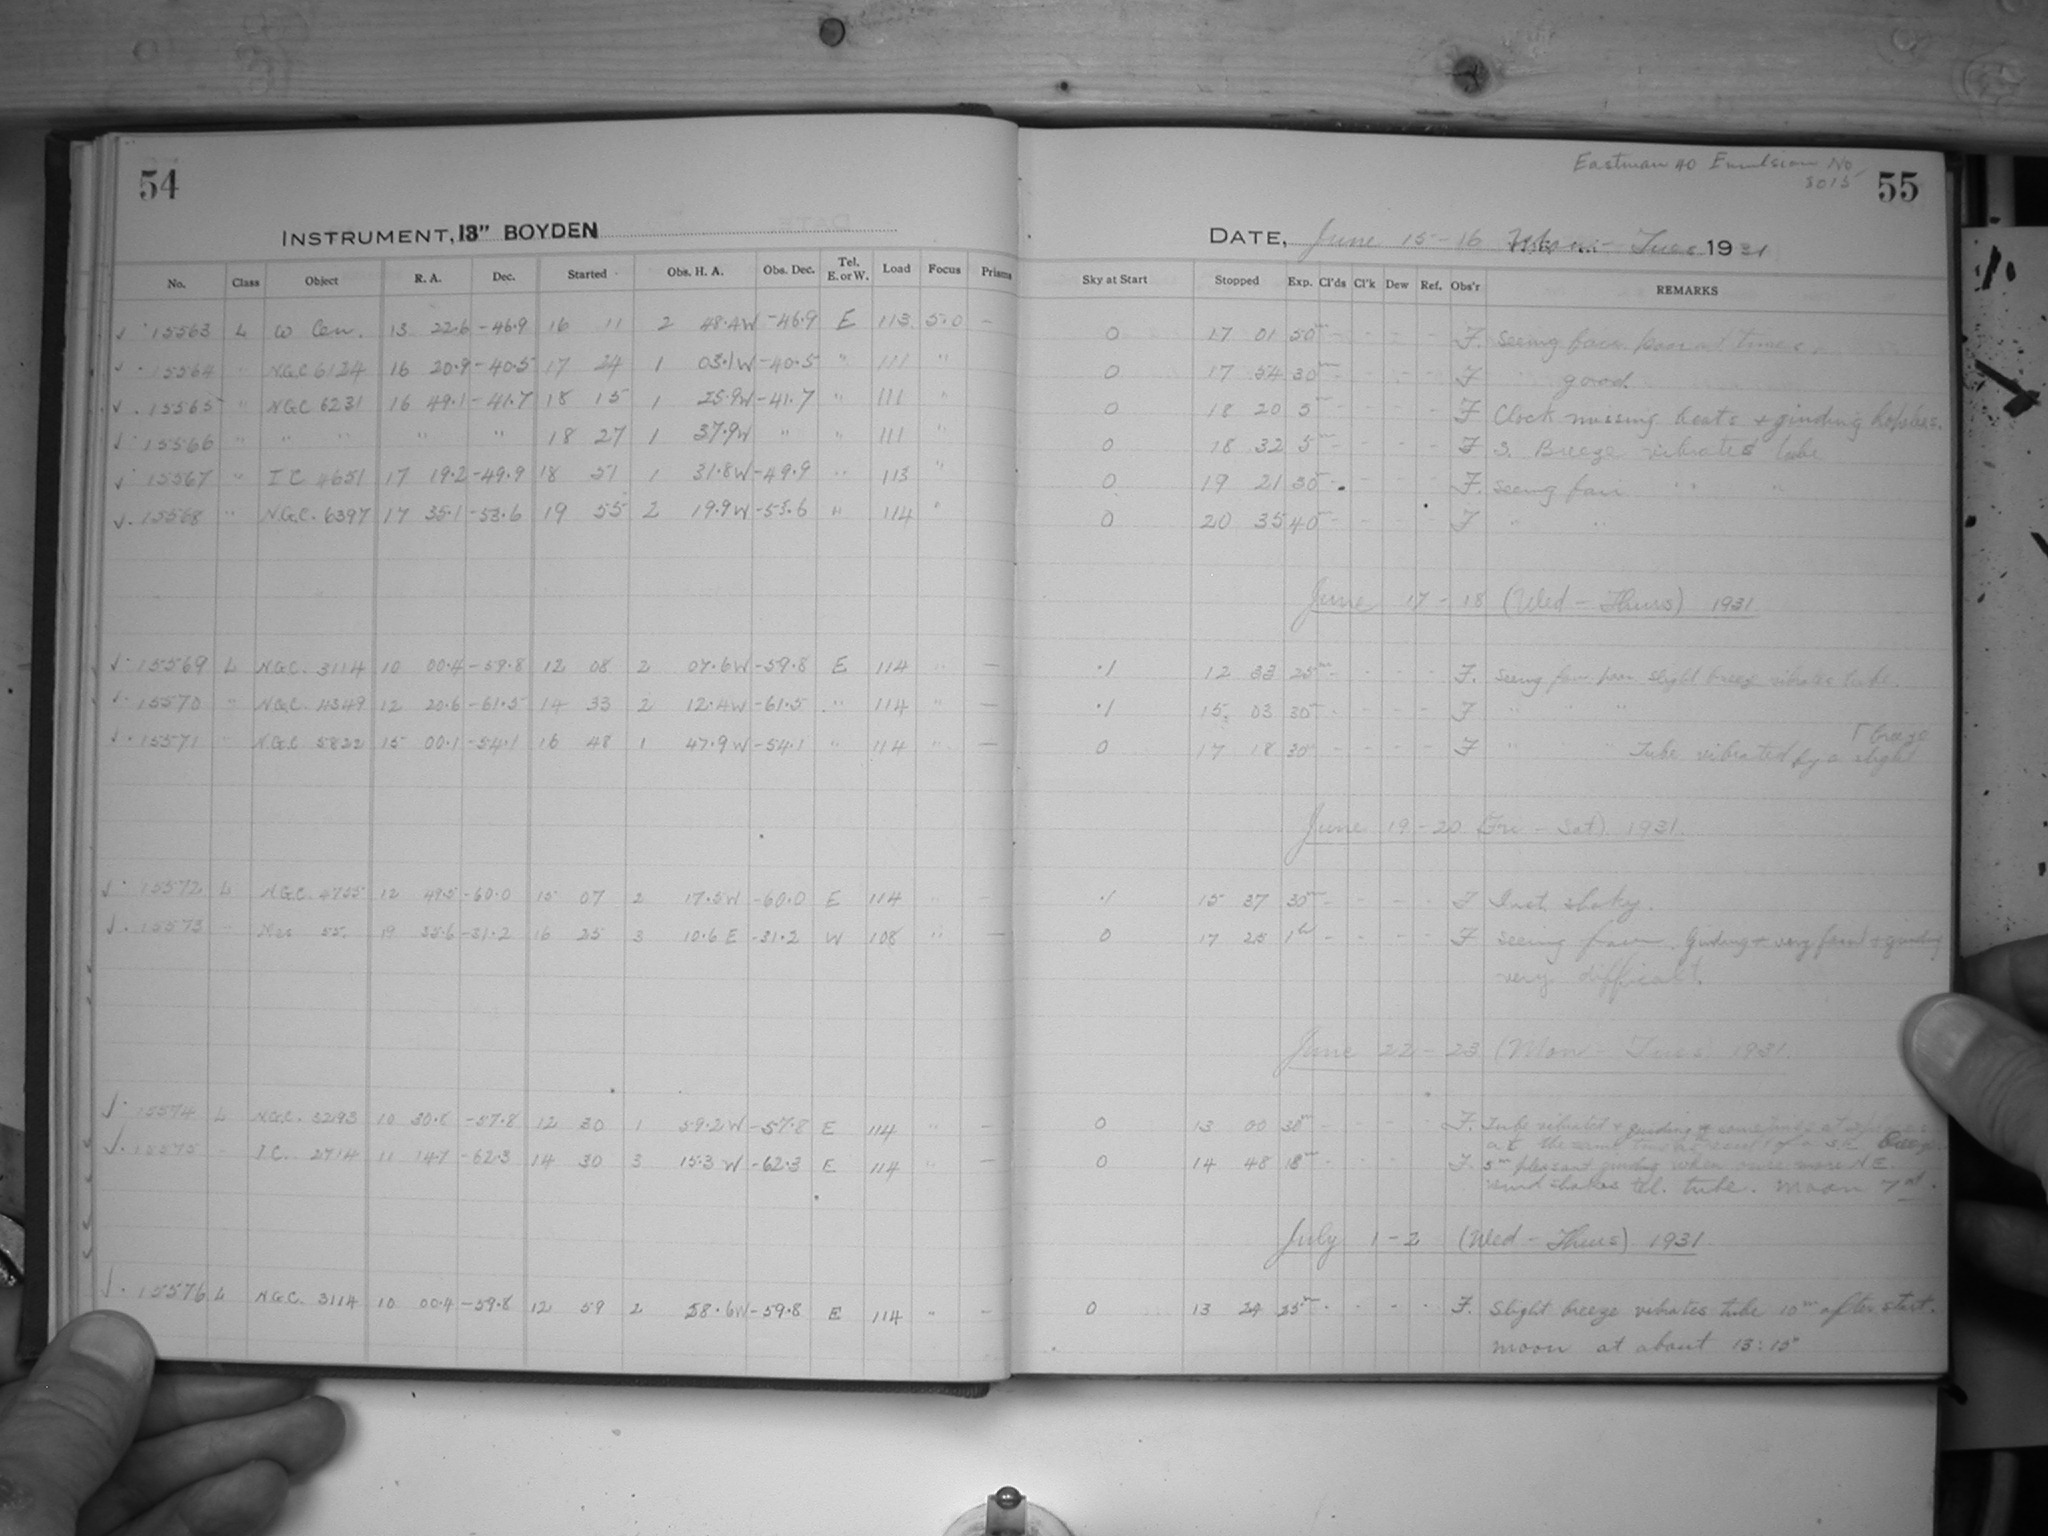 54
INSTRUMENT, 13" BOYDEN
No. Class Object R. A. Dec. Started Obs. H. A. Obs. Dec. Tel. E. or W. Load Focus Prisms
√ 15563 L W Cen. 13 22.6 -46.9 16 11 2 48.4W -46.9 E 113 5.0 —
√ 15564 " N.G.C 6124 16 20.9 -40.5 17 24 1 03.1W -40.5 " 111 "
√ 15565 " NGC 6231 16 49.1 -41.7 18 15 1 25.9W -41.7 " 111 "
√ 15566 " " " " " 18 27 1 37.9W " " 111 "
√ 15567 " I C 4651 17 19.2 -49.9 18 51 1 31.8W -49.9 " 113 "
√ 15568 " N.G.C. 6397 17 35.1 -53.6 19 55 2 19.9W -53.6 " 114 "
√ 15569 L N.G.C. 3114 10 00.4 -59.8 12 08 2 07.6W -59.8 E 114 " —
√ 15570 " N.G.C. 4349 12 20.6 -61.5 14 33 2 12.4W -61.5 " 114 " —
√ 15571 " N.G.C 5822 15 00.1 -54.1 16 48 1 47.9W -54.1 " 114 " —
√ 15572 L N.G.C. 4755 12 49.5 -60.0 15 07 2 17.5W -60.0 E 114 " —
√ 15573 " Mes 55. 19 35.6 -31.2 16 25 3 10.6 E -31.2 W 108 " —
√ 15574 L N.G.C. 3293 10 30.8 -57.8 12 30 1 59.2W -57.8 E 114 " —
√ 15575 " I.C. 2714 11 14.7 -62.3 14 30 3 15.3 W -62.3 E 114 " —
√ 15576 L N.G.C. 3114 10 00.4 -59.8 12 59 2 58.6W -59.8 E 114 " —
Eastman 40 Emulsion No
8015
55
DATE, June 15-16 Mon - Tues 1931
Sky at Start Stopped Exp. Cl'ds Cl'k Dew Ref. Obs'r REMARKS
0 17 01 50m - - - - F. Seeing fair poor at times.
0 17 54 30m - - - - F " good.
0 18 20 5m - - - - F Clock missing beats + guiding
0 18 32 5m - - - - F S. Breeze vibrated tube
0 19 21 30 - - - - F. Seeing fair " "
0 20 35 40 - - - - F " "
June 17-18 (Wed - Thurs) 1931
.1 12 33 25m - - - - F. Seeing fair poor slight breeze vibrates tube.
.1 15 03 30 - - - - F " " "
0 17 18 30 - - - - F " " Tube vibrated by a slight breeze
June 19-20 (Fri - Sat) 1931.
.1 15 37 30m - - - - F Inst. shaky.
0 17 25 1h - - - - F Seeing fair. Guiding * very faint + guiding
very difficult.
June 22-23 (Mon - Tues) 1931.
0 13 00 30m - - - - F. Tube vibrated + guiding *
at the same time breeze.
0 14 48 18m - - - - F. 5m pleasant guiding when once more N E.
wind shakes tel. tube. Moon 7d.
July 1-2 (Wed - Thurs) 1931.
0 13 24 25m - - - - F. Slight breeze vibrates tube 10m after start.
moon at about 13:15